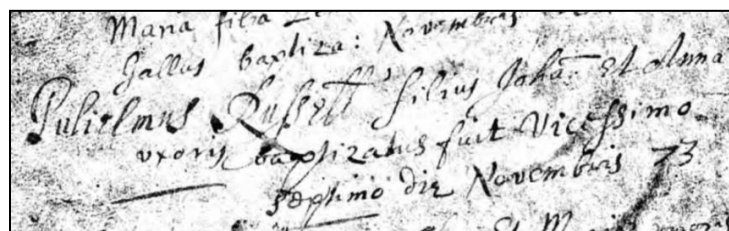 Maria filia
Gallus baptiza: Novembris
Gulielmus Russell filius Johan Et Anna
uxoris baptizatus fuit Vicessimo
septimo die Novembris 73
Et